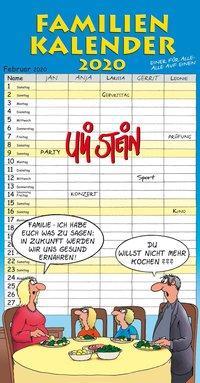 FAMILIEN
KALENDER
2020
EINER FÜR ALLE-
ALLE AUF EINEN
Februar 2020
JAN ANJA LARISSA GERRIT LEONIE
1 Samstag GEBURTSTAG
2 Sonntag
3 Montag
4 Dienstag
5 Mittwoch
6 Donnerstag
7 Freitag PRÜFUNG
8 Samstag
9 Sonntag PARTY
10 Montag
11 Dienstag
12 Mittwoch
13 Donnerstag Sport
14 Freitag KONZERT
15 Samstag
16 Sonntag KINO
17
22
23
24
25
26
27
ULI STEIN
FAMILIE - ICH HABE
EUCH WAS ZU SAGEN:
IN ZUKUNFT WERDEN
WIR UNS GESUND
ERNÄHREN!
DU
WILLST NICHT MEHR
KOCHEN???